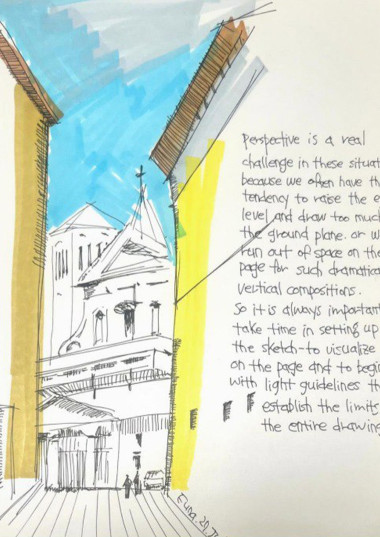 Perspective is a real
challenge in these situat
because we often have th
tendency to raise the e
level and draw too much
the ground plane. or w
run out of space on the
page for such dramatica
vertical compositions.
So it is always important
take time in setting up
the sketch-to visualize
on the page and to begin
with light guidelines th
establish the limits
the entire drawing